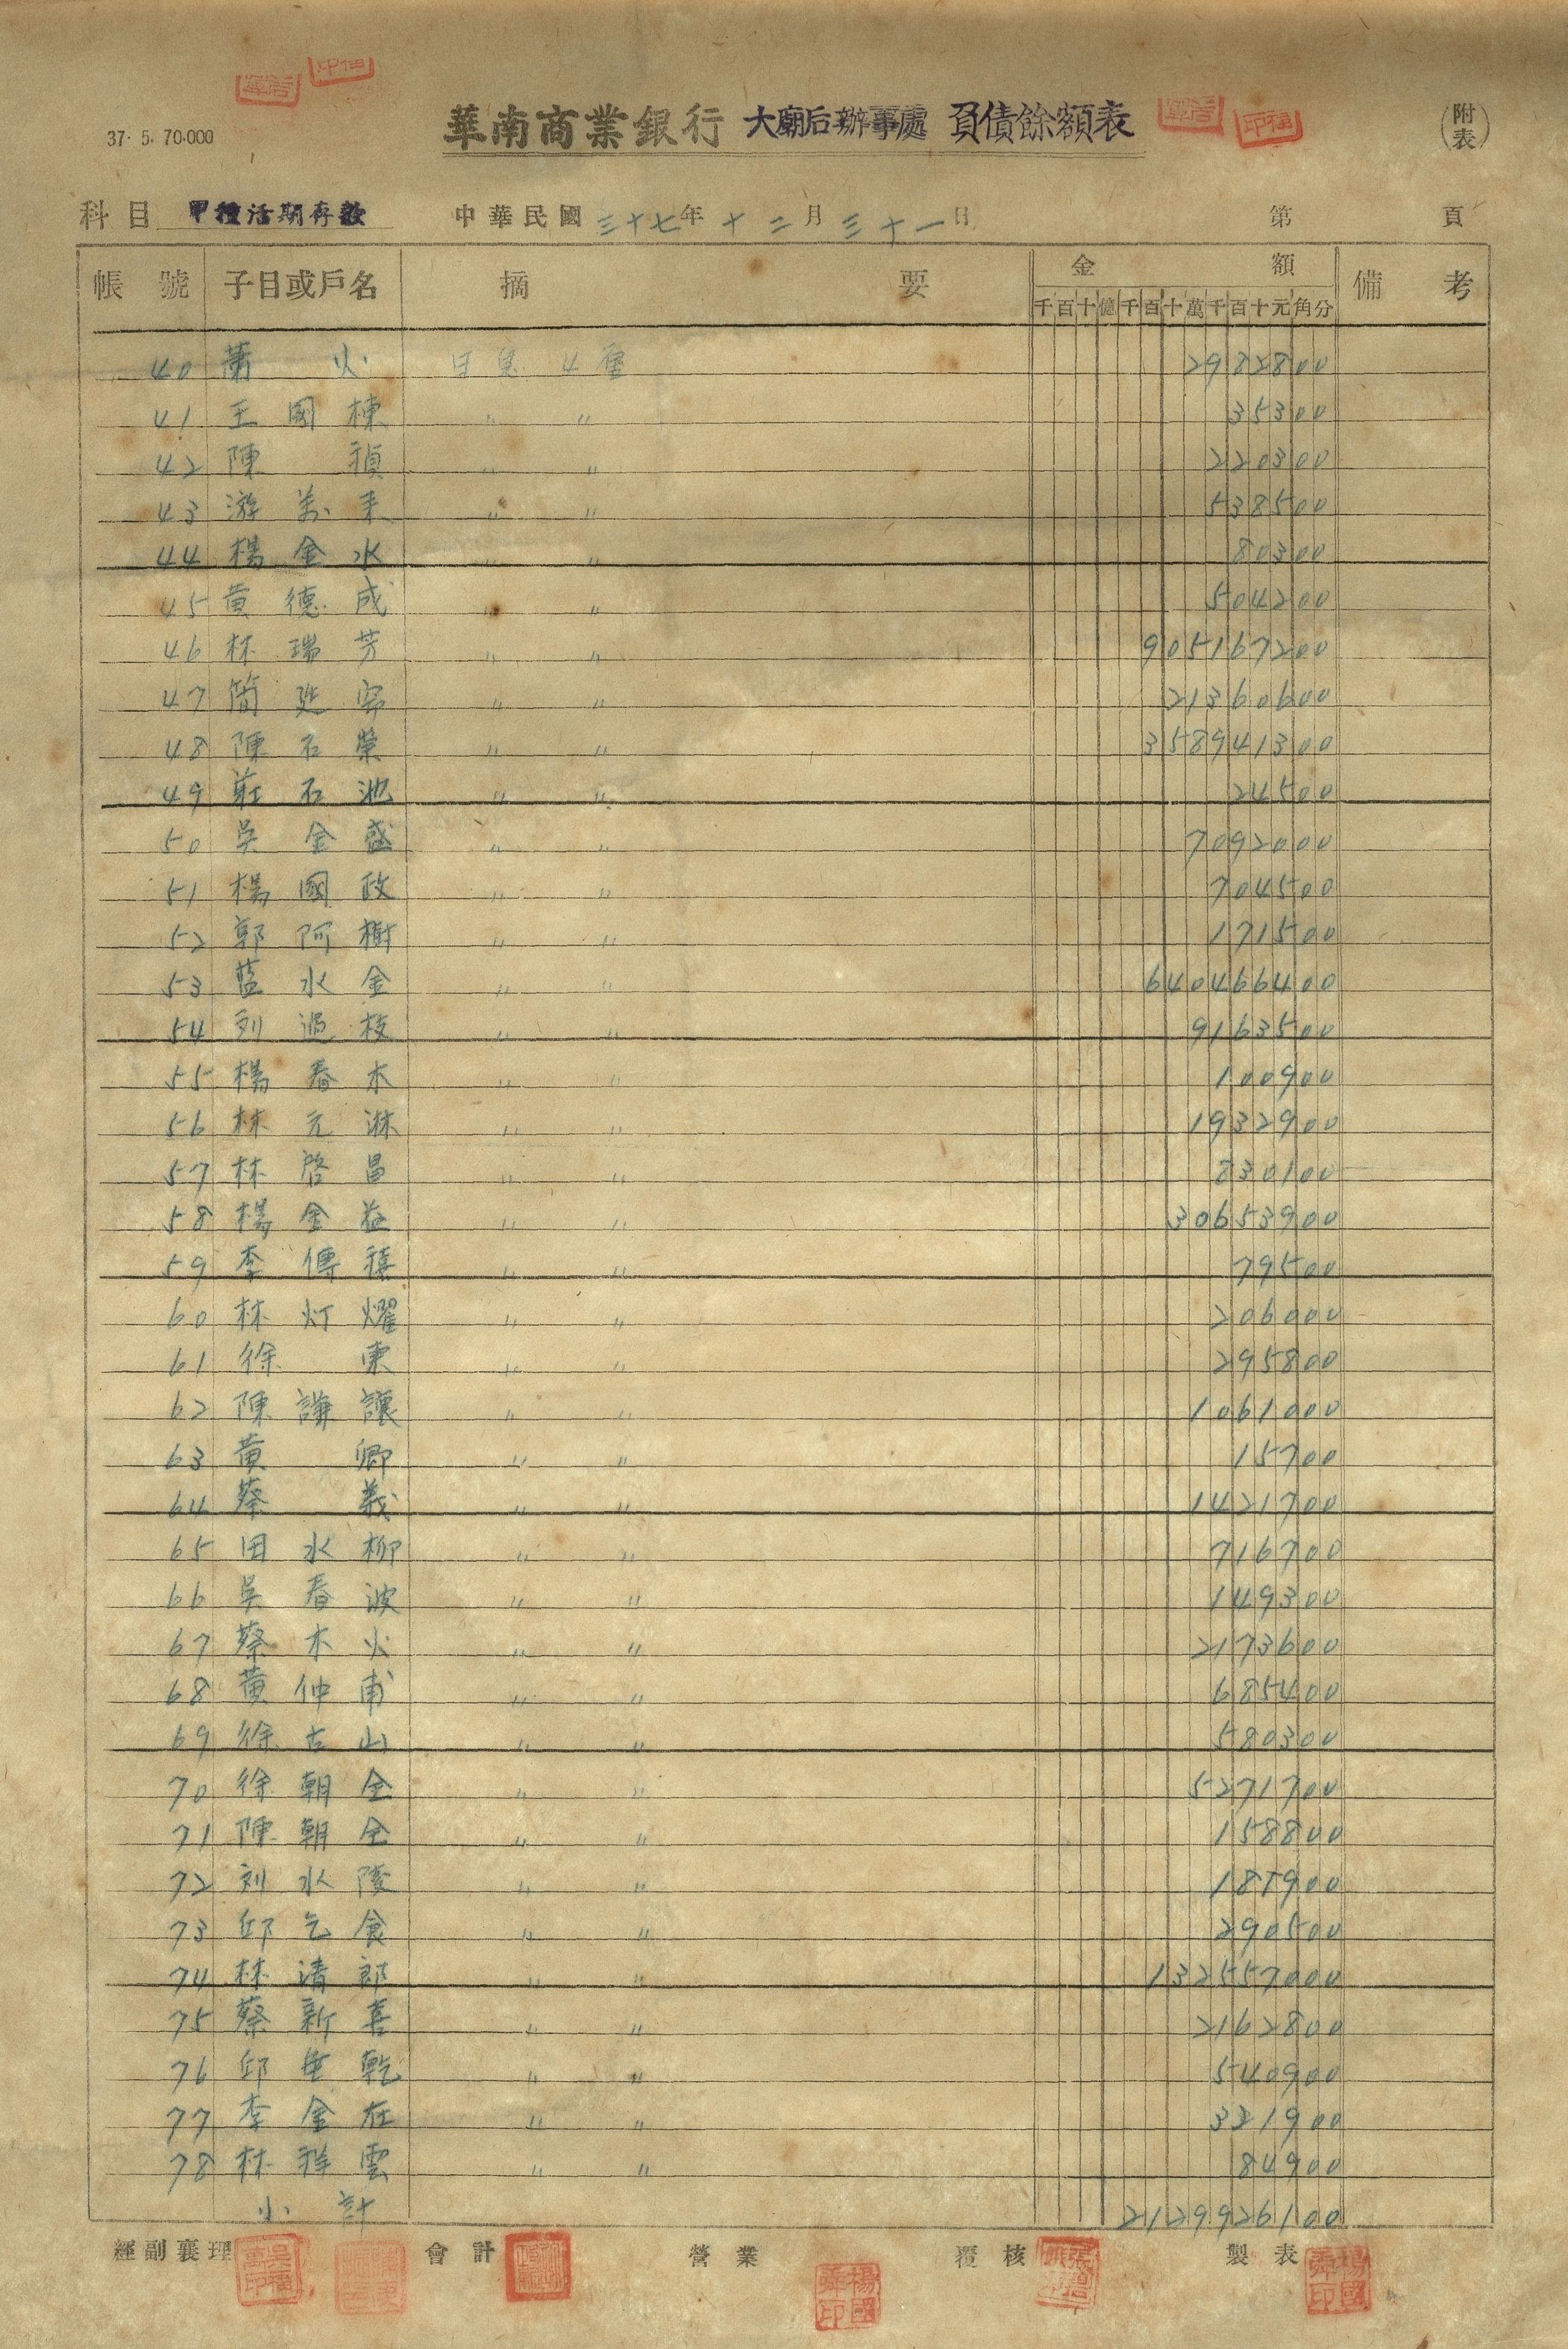 37. 5. 70.000
華南商業銀行 大廟后辦事處 負債餘額表 (附表)
科目 甲種活期存款 中華民國三十七年十二月三十一日 第 頁
帳號 子目或戶名 摘要 金額 備考
千百十億千百十萬千百十元角分
40 蕭火 日息 4 2982800
41 王國棟 〃 〃 35300
42 陳禎 〃 〃 220300
43 游萬來 〃 〃 538500
44 楊金水 〃 〃 80300
45 黃德成 〃 〃 504200
46 林瑞芳 〃 〃 905167200
47 簡 〃 〃 21360600
48 陳石榮 〃 〃 358941300
49 莊石池 〃 〃 24500
50 吳金盛 〃 〃 7092000
51 楊國政 〃 〃 704500
52 郭阿樹 〃 〃 171500
53 藍水金 〃 〃 640466400
54 刘過枝 〃 〃 9163500
55 楊春木 〃 〃 100900
56 林元淋 〃 〃 1932900
57 林啓昌 〃 〃 830100
58 楊金益 〃 〃 30653900
59 李傳 〃 〃 79500
60 林灯耀 〃 〃 206000
61 徐東 〃 〃 295800
62 陳謙讓 〃 〃 1061000
63 黃卿 〃 〃 15700
64 蔡義 〃 〃 1421700
65 田水柳 〃 〃 716700
66 吳春波 〃 〃 149300
67 蔡木火 〃 〃 2173600
68 黃仲甫 〃 〃 685400
69 徐古山 〃 〃 580300
70 徐朝全 〃 〃 5271700
71 陳朝全 〃 〃 158800
72 刘水陵 〃 〃 1900
73 邱乞食 〃 〃 290500
74 林清郎 〃 〃 132557000
75 蔡新喜 〃 〃 2162800
76 邱垂乾 〃 〃 540900
77 李金在 〃 〃 321900
78 林祥雲 〃 〃 84900
小計 2129926100
經副襄理 會計 營業 覆核 製表
楊國舜印 楊國舜印